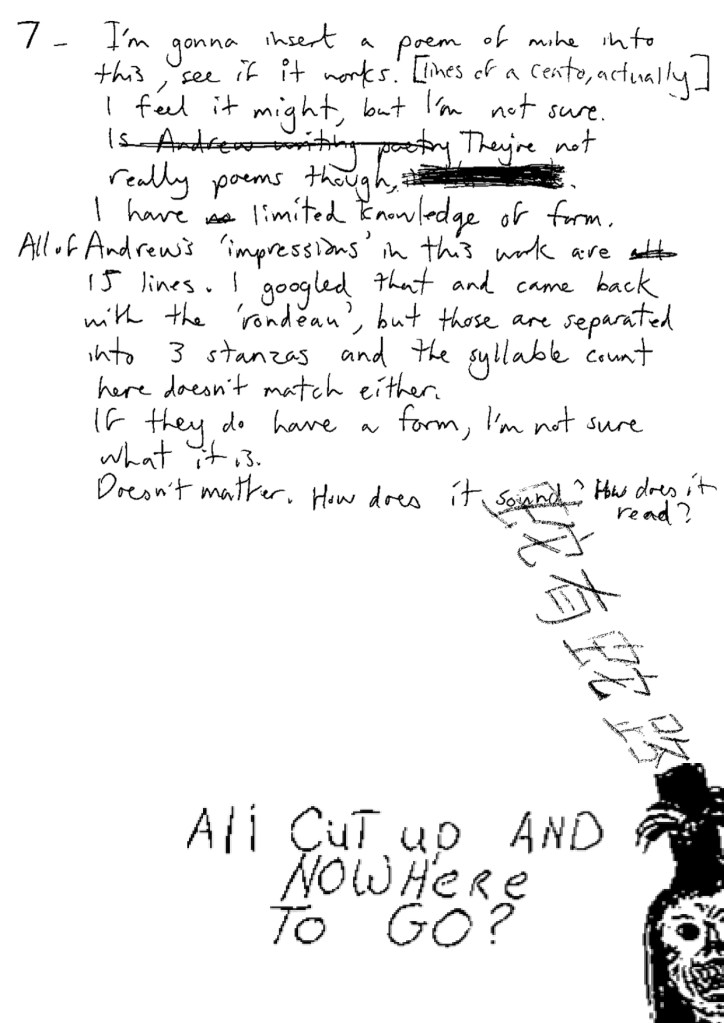 7 - I'm gonna insert a poem of mine into
this, see if it works. [lines of a cento, actually]
I feel it might, but I'm not sure.
Is Andrew writing poetry They're not
really poems though, .
I have no limited knowledge of form.
All of Andrew's 'impressions' in this work are all
15 lines. I googled that and came back
with the 'rondeau', but those are separated
into 3 stanzas and the syllable count
here doesn't match either.
If they do have a form, I'm not sure
what it is.
Doesn't matter. How does it sound? How does it
read?
蛇有蛇路
All CUT up AND
NOWHERE
TO GO?